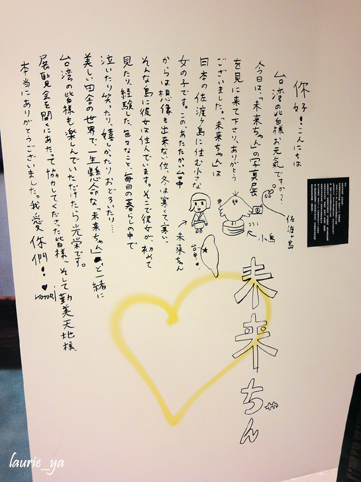 你好!こんにちは
台湾の皆様お元気ですか?
今日は、「未来ちゃん」の写真展
を見に来て下さり、ありがとう
ございました。「未来ちゃん」は
日本の佐渡ヶ島に住む小さな
女の子です。このあたたかい台中
からは想像も出来ない位、冬は寒くて寒い、
そんな島に彼女は住んでいます。そこで彼女が初めて
見たり、経験した、色々なこと、毎日の暮らしの中で
泣いたり笑ったり、嬉しかったりおどろいたり…
美しい田舎の世界で一生懸命な、"未来ちゃん"とご一緒に
台湾の皆様も楽しんでいただけたら光栄です。
展覧会を開くにあたって協力してくださった皆様、そして勤美天地様、
本当にありがとうございました。我愛你們!♥
佐渡ヶ島
小鳥
未来ちゃん
台中
未来ちゃん
laurie_ya